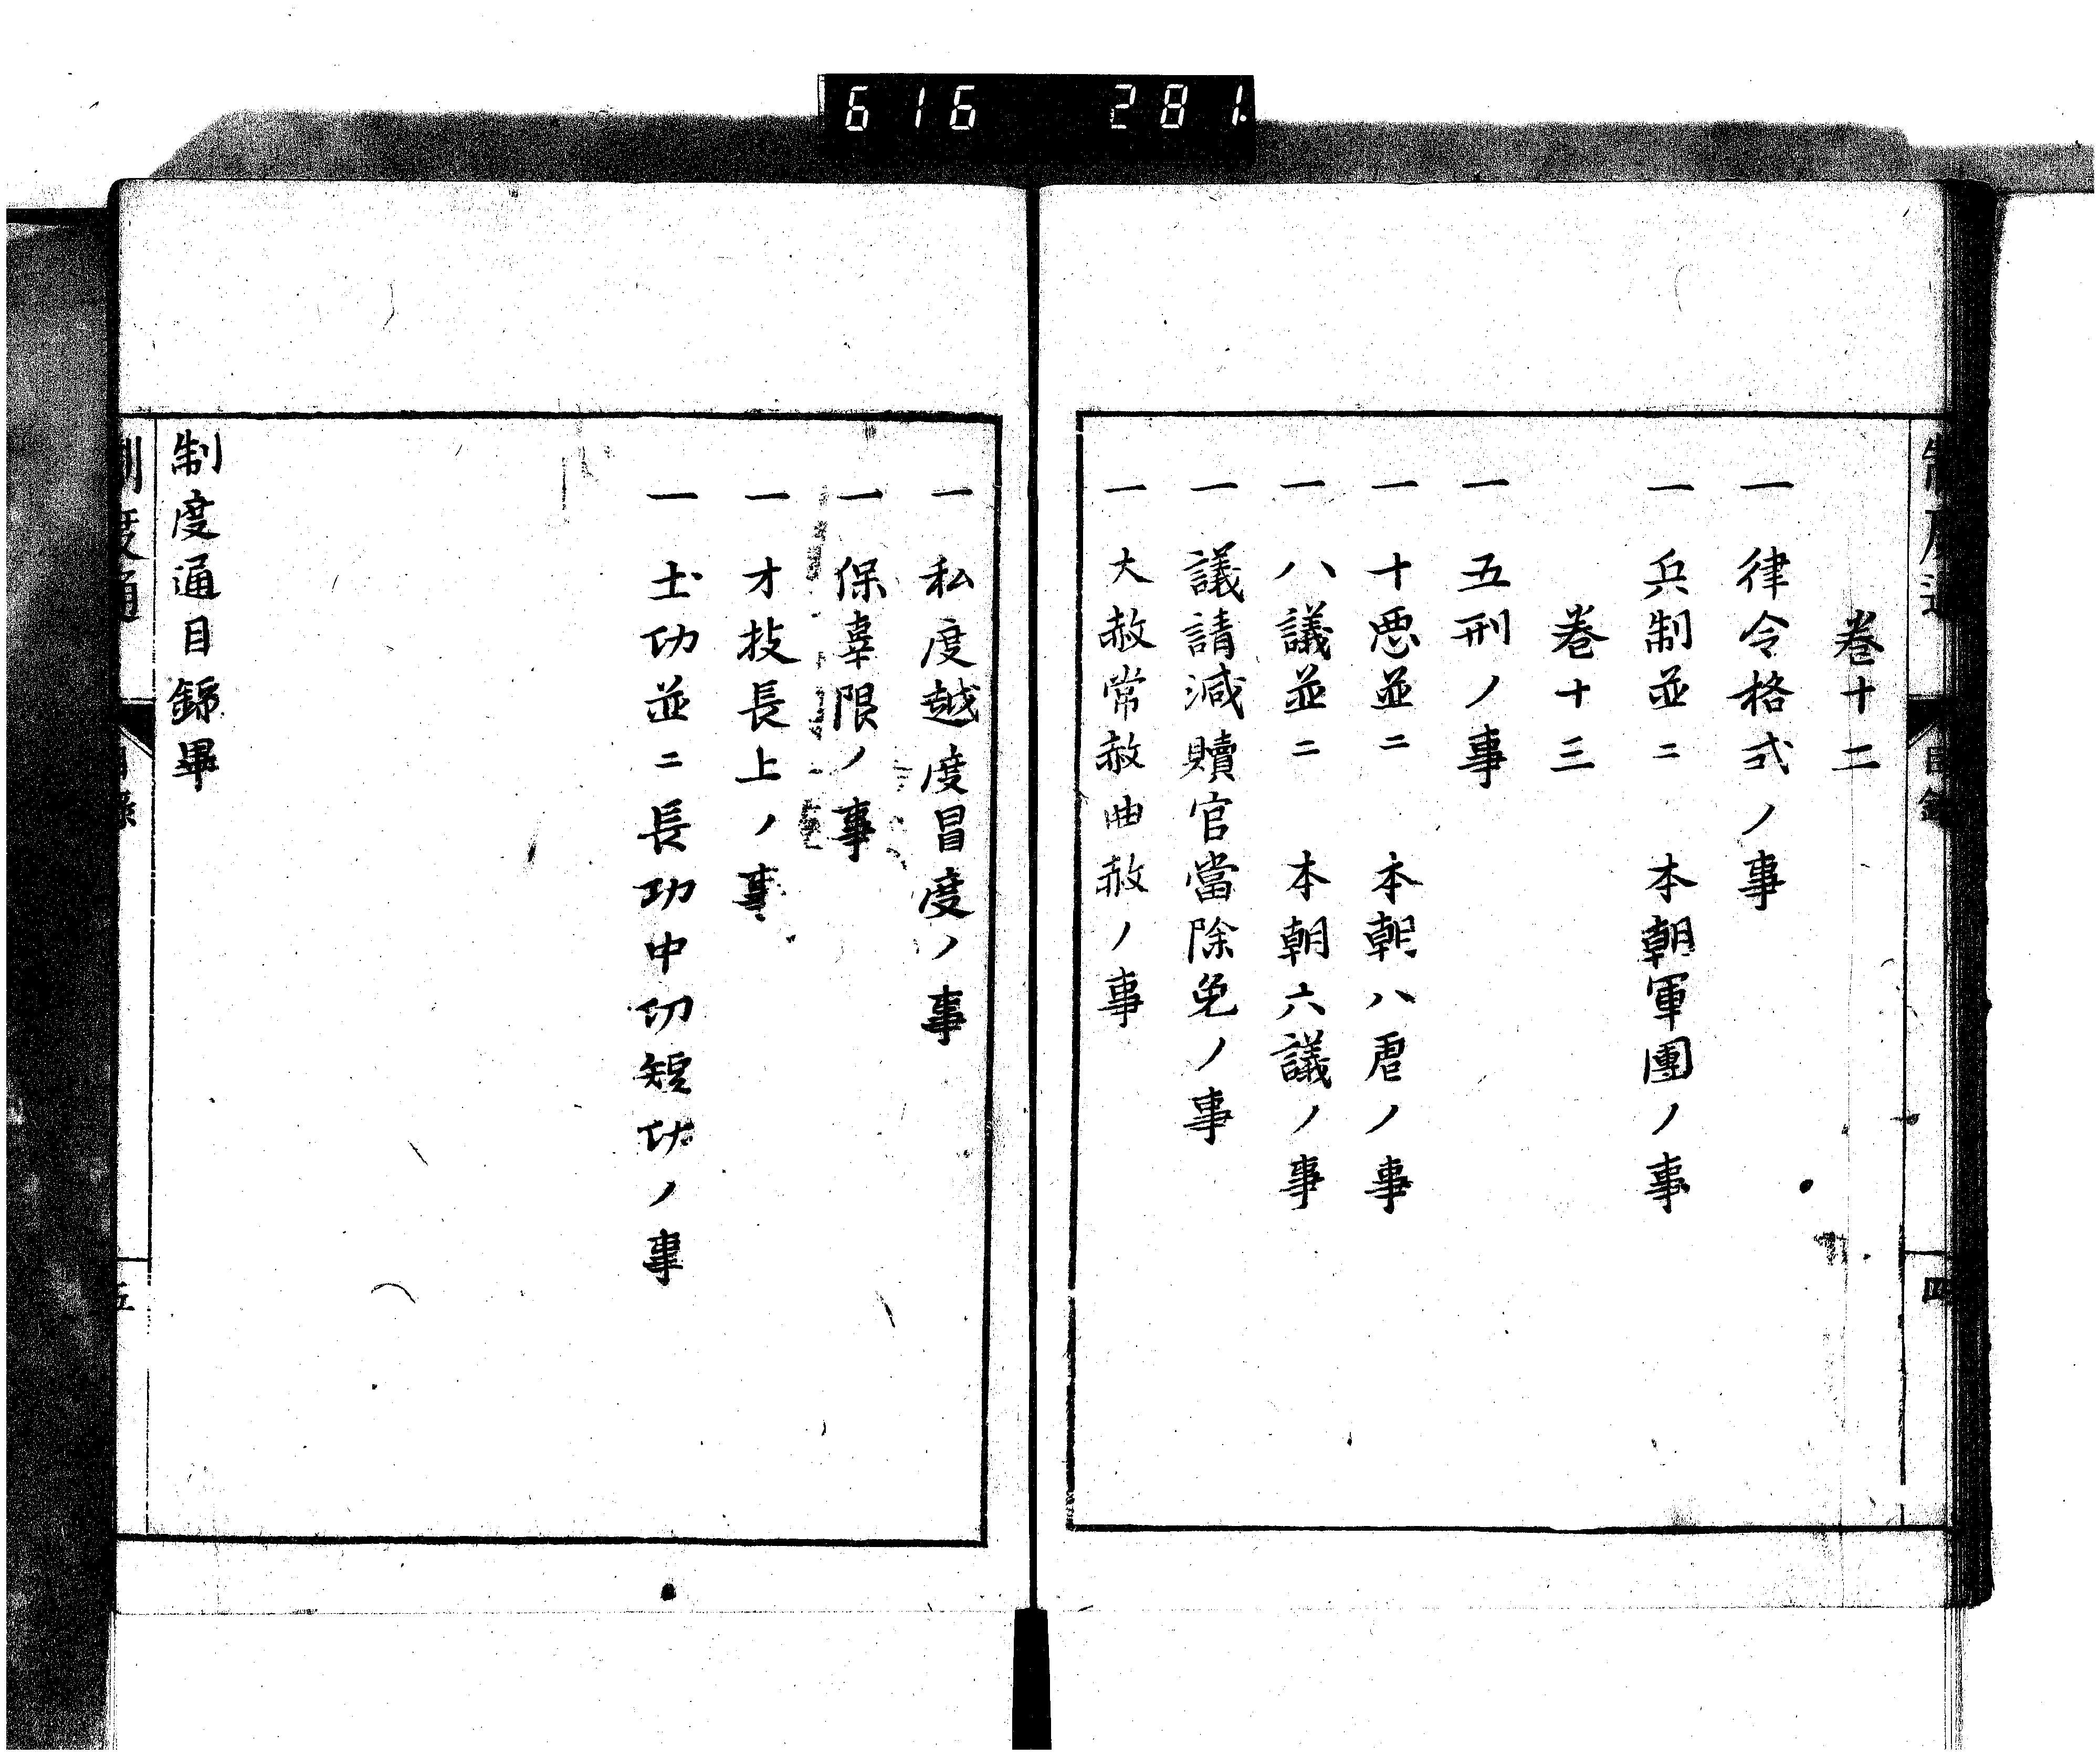 616 281
巻十二
一 律令格式ノ事
一 兵制並ニ 本朝軍團ノ事
巻十三
一 五刑ノ事
一 十悪並ニ 本朝八虐ノ事
一 八議並ニ 本朝六議ノ事
一 議請減贖官當除免ノ事
一 大赦常赦曲赦ノ事
四
一 私度越度冒度ノ事
一 保辜限ノ事
一 才技長上ノ事
一 土功並ニ長功中功短功ノ事
制度通目録畢
制度通
五